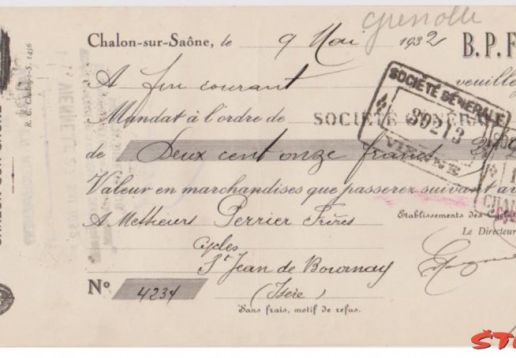 grenoble
Chalon-sur-Saône, le 9 Mai 1932 B.P.F
A fin courant veuillez
Mandat à l'ordre de SOCIÉTÉ GÉNÉRALE
SOCIÉTÉ GÉNÉRALE
39213
VIENNE
de Deux cent onze francs
Valeur en marchandises que passerez suivant
A Messieurs Perrier Frères
Établissements des
Le Directeur
Cycles
St Jean de Bournay
No 4234 (Isère)
Sans frais, motif de refus.